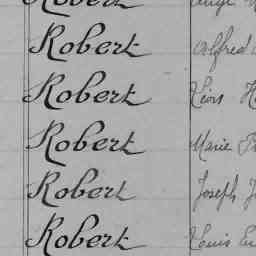 Robert
Robert Alfred
Robert Léon
Robert Marie
Robert Joseph
Robert Louis